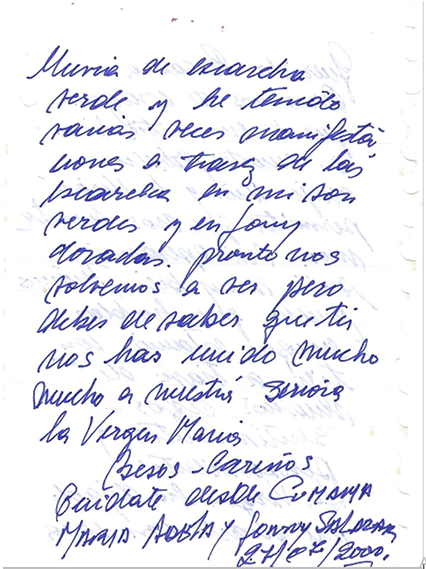 lluvia de escarcha
verde y he tenido
varias veces manifesta
ciones a travez de las
escarcha en mi son
verdes y en Jonny
doradas. pronto nos
volvemos a ver pero
debes de saber que tu
nos has unido mucho
mucho a nuestra Señora
la Virgen Maria
Besos - Cariños
Cuidate desde CUMANA
MARIA ADELA Y Jonny SALAZAR
27/07/2000.